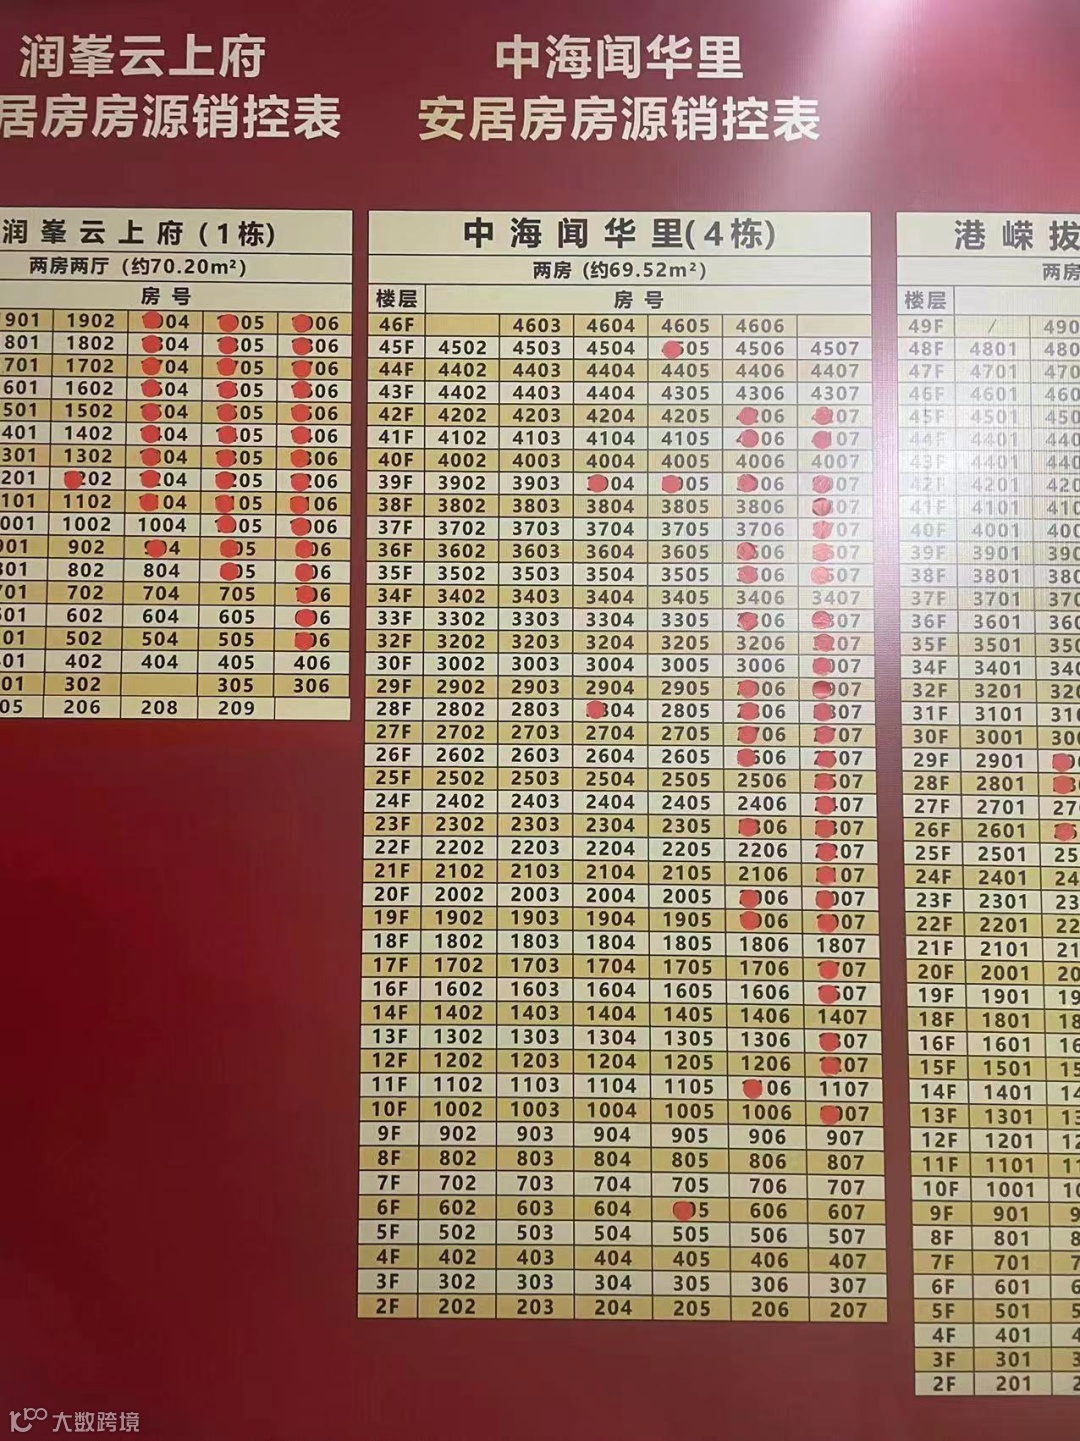 润峯云上府
居房房源销控表
中海闻华里
安居房房源销控表
润峯云上府(1栋)
两房两厅 (约70.20m²)
房号
901 1902 04 05 06
801 1802 04 05 06
701 1702 04 05 06
601 1602 04 05 06
501 1502 04 05 06
401 1402 04 05 06
301 1302 04 05 06
201 202 04 05 06
101 1102 04 05 06
001 1002 1004 05 06
901 902 4 05 06
801 802 804 05 06
701 702 704 705 06
601 602 604 605 06
01 502 504 505 06
01 402 404 405 406
01 302 305 306
05 206 208 209
中海闻华里(4栋)
两房 (约69.52m²)
楼层 房号
46F 4603 4604 4605 4606
45F 4502 4503 4504 505 4506 4507
44F 4402 4403 4404 4405 4406 4407
43F 4402 4403 4404 4305 4306 4307
42F 4202 4203 4204 4205 06 07
41F 4102 4103 4104 4105 06 07
40F 4002 4003 4004 4005 4006 4007
39F 3902 3903 04 05 06 07
38F 3802 3803 3804 3805 3806 07
37F 3702 3703 3704 3705 3706 07
36F 3602 3603 3604 3605 06 07
35F 3502 3503 3504 3505 06 07
34F 3402 3403 3404 3405 3406 3407
33F 3302 3303 3304 3305 06 07
32F 3202 3203 3204 3205 3206 07
30F 3002 3003 3004 3005 3006 07
29F 2902 2903 2904 2905 06 07
28F 2802 2803 04 2805 06 07
27F 2702 2703 2704 2705 06 07
26F 2602 2603 2604 2605 06 07
25F 2502 2503 2504 2505 2506 07
24F 2402 2403 2404 2405 2406 07
23F 2302 2303 2304 2305 06 07
22F 2202 2203 2204 2205 2206 07
21F 2102 2103 2104 2105 2106 07
20F 2002 2003 2004 2005 06 07
19F 1902 1903 1904 1905 06 07
18F 1802 1803 1804 1805 1806 1807
17F 1702 1703 1704 1705 1706 07
16F 1602 1603 1604 1605 1606 07
14F 1402 1403 1404 1405 1406 1407
13F 1302 1303 1304 1305 1306 07
12F 1202 1203 1204 1205 1206 07
11F 1102 1103 1104 1105 06 1107
10F 1002 1003 1004 1005 1006 07
9F 902 903 904 905 906 907
8F 802 803 804 805 806 807
7F 702 703 704 705 706 707
6F 602 603 604 5 606 607
5F 502 503 504 505 506 507
4F 402 403 404 405 406 407
3F 302 303 304 305 306 307
2F 202 203 204 205 206 207
港嵘拔
两房
楼层
49F / 490
48F 4801 480
47F 4701 470
46F 4601 460
45F 4501 450
44F 4401 440
43F 4401 440
42F 4201 420
41F 4101 410
40F 4001 400
39F 3901 390
38F 3801 380
37F 3701 370
36F 3601 360
35F 3501 350
34F 3401 340
32F 3201 320
31F 3101 310
30F 3001 300
29F 2901
28F 2801
27F 2701 270
26F 2601
25F 2501 25
24F 2401 24
23F 2301 23
22F 2201 22
21F 2101 21
20F 2001 20
19F 1901 19
18F 1801 18
16F 1601 16
15F 1501 15
14F 1401 14
13F 1301 13
12F 1201 12
11F 1101 11
10F 1001 10
9F 901 9
8F 801 8
7F 701 7
6F 601 6
5F 501 5
4F 401 4
3F 301 3
2F 201 2
大数跨境